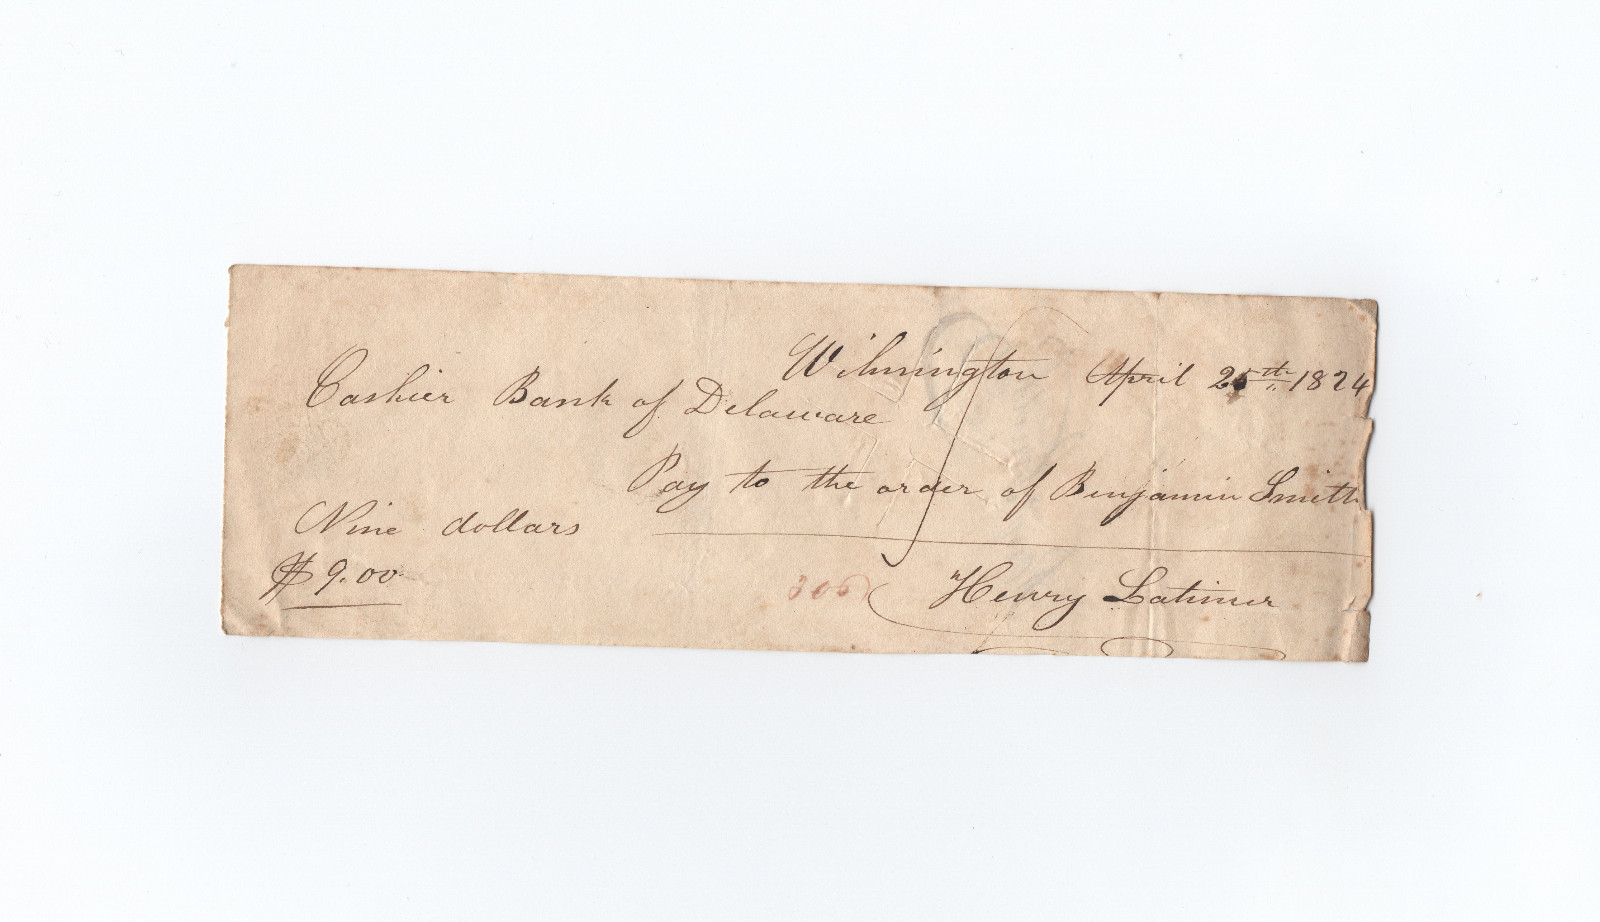 Wilmington April 25th 1824
Cashier Bank of Delaware
Pay to the order of Benjamin Smith
Nine dollars
$9.00
306
Henry Latimer